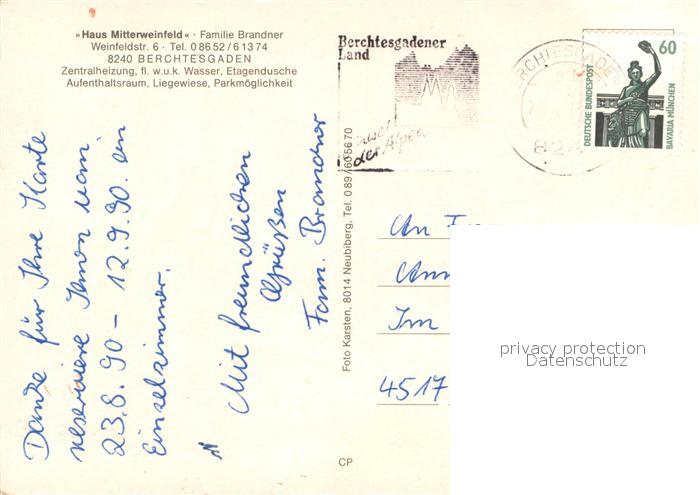 »Haus Mitterweinfeld« · Familie Brandner
Weinfeldstr. 6 · Tel. 0 86 52 / 6 13 74
8240 BERCHTESGADEN
Zentralheizung, fl. w.u.k. Wasser, Etagendusche
Aufenthaltsraum, Liegewiese, Parkmöglichkeit
Danke für Ihre Karte
reserviere Ihnen vom
23.8.90 – 12.9.90 ein
Einzelzimmer.
Mit freundlichen
Grüßen
Fam. Brandner
Foto Karsten, 8014 Neubiberg, Tel. 0 89 / 60 56 70
CP
Berchtesgadener
Land
der Alpen
60
DEUTSCHE BUNDESPOST
BAVARIA MÜNCHEN
An
Im
4517
privacy protection
Datenschutz